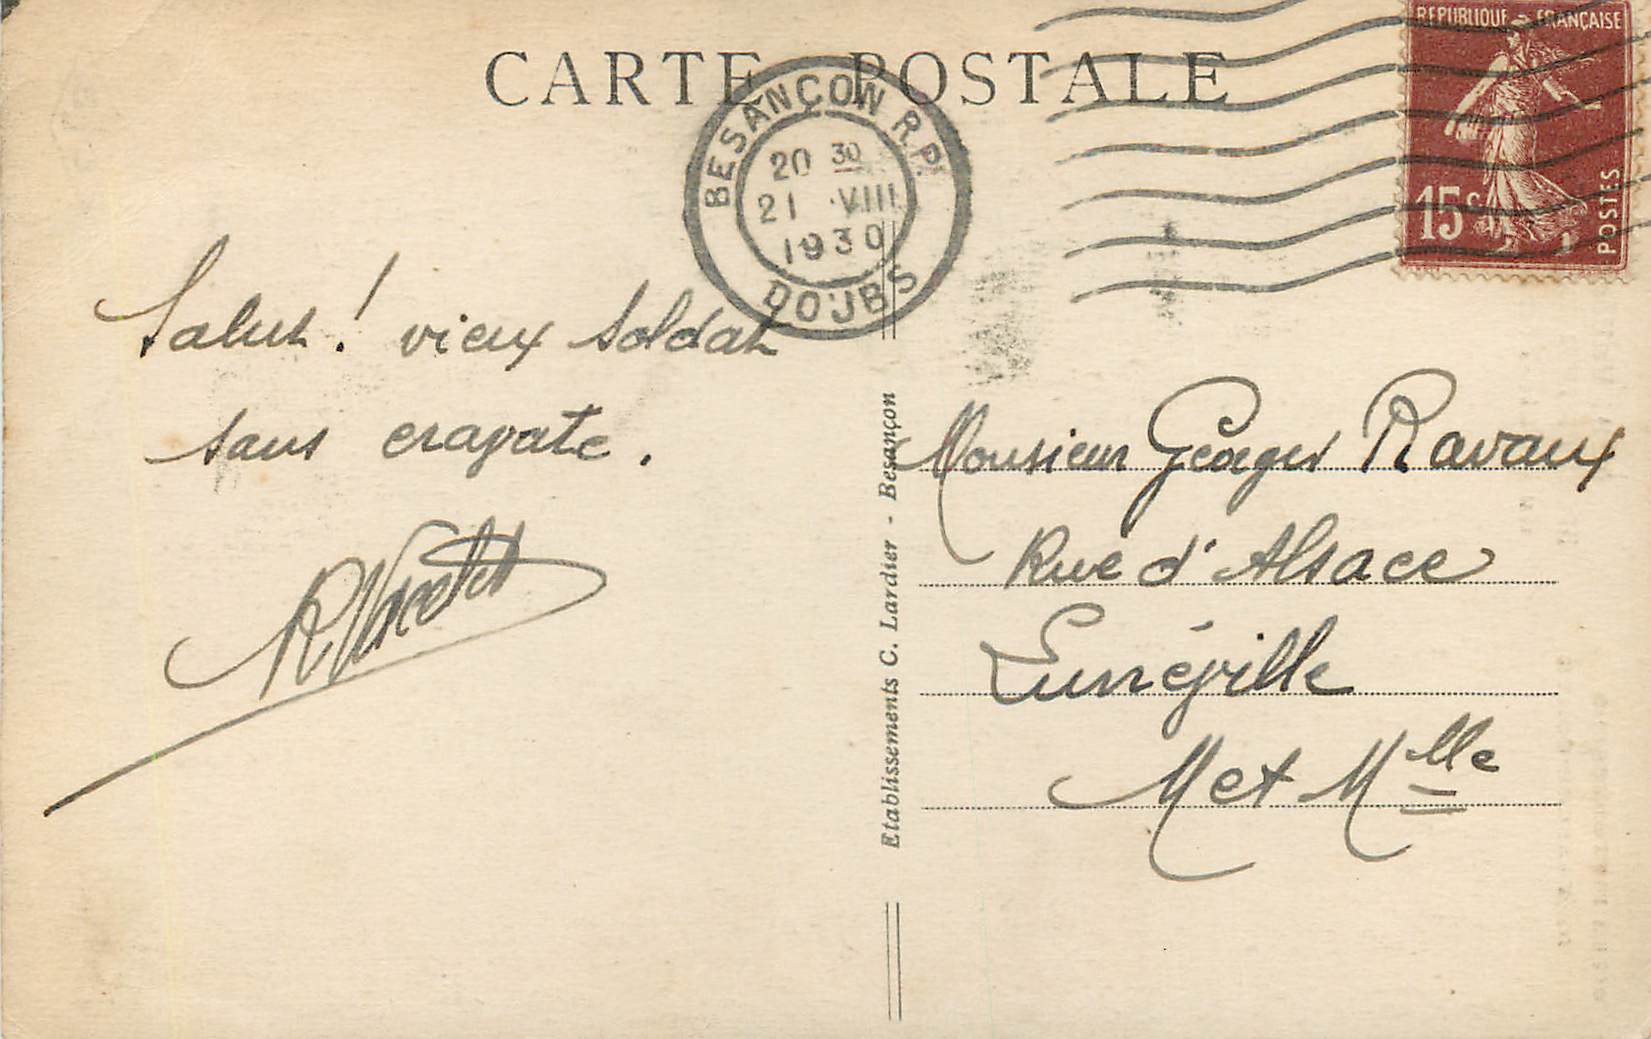 CARTE POSTALE
REPUBLIQUE FRANÇAISE
15c
POSTES
BESANÇON R.P.
20 30
21 VIII
1930
DOUBS
Salut ! vieux soldat
sans cravate.
Etablissements C. Lardier - Besançon
Monsieur Georges Ravaux
Rue d'Alsace
Lunéville
M et Mlle